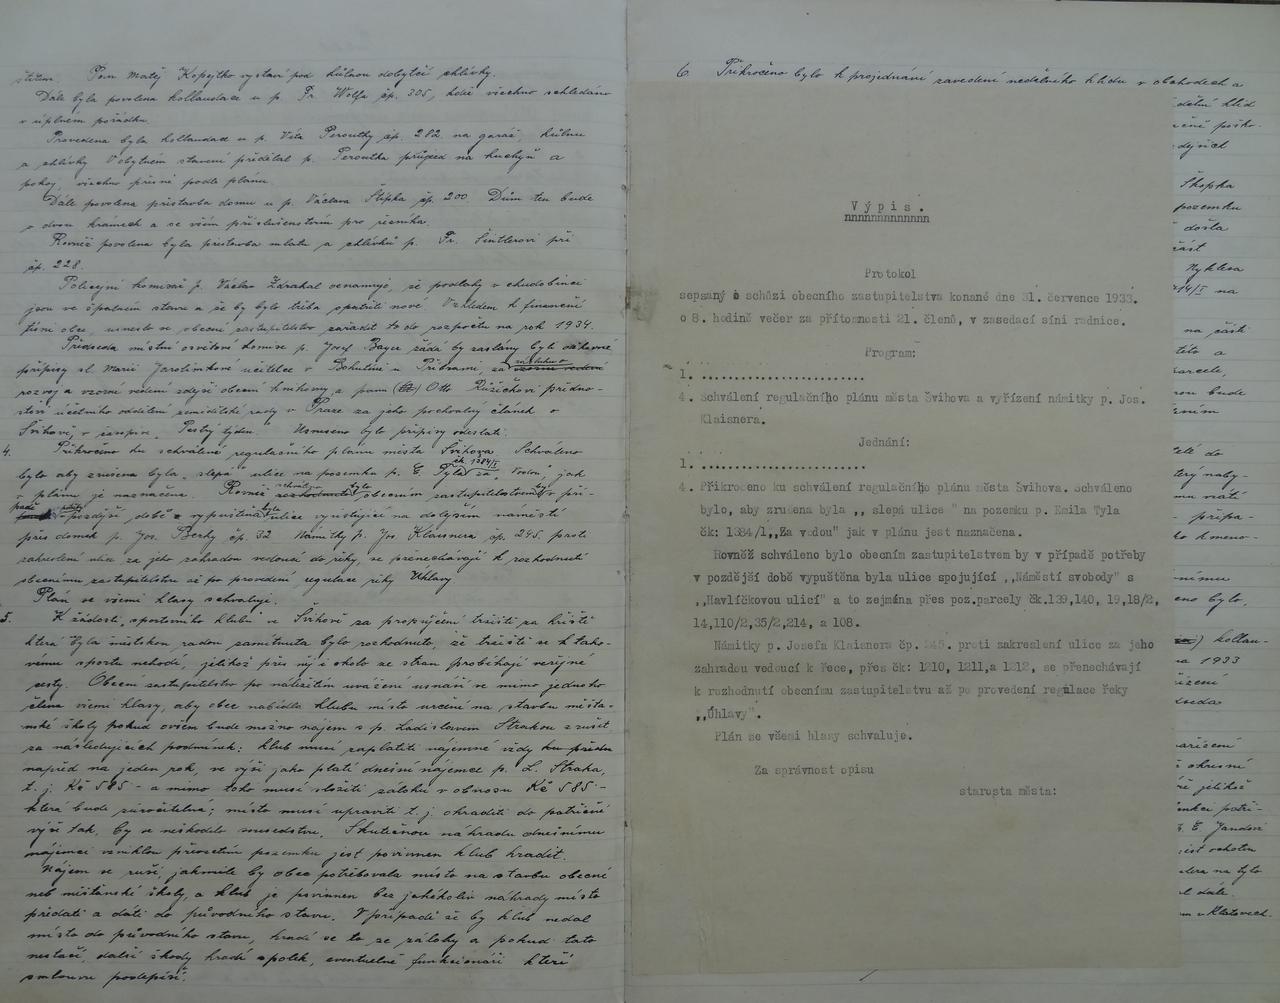 štěrem. Pan Matěj Kopejtko vystaví pod kůlnou dobytčí chlívky.
Dále byla povolena kollaudace u p. Fr. Wolfa čp. 305, kdež všechno shledáno
v úplném pořádku.
Provedena byla kollaudace u p. Víta Peroutky čp. 282 na garáž, kůlnu
a chlívky. V obytném stavení přidělal p. Peroutka průjezd na kuchyň a
pokoj, všechno přesně podle plánu.
Dále povolena přístavba domu u p. Václava Štípka čp. 200. Dům ten bude
o dvou krámech a se vším příslušenstvím pro řezníka.
Rovněž povolena byla přístavba mlatu a chlívků p. Fr. Šintlerovi při
čp. 228.
Policejní komisař p. Václav Zdráhal oznamuje, že podlahy v chudobinci
jsou ve špatném stavu a že by bylo třeba opatřiti nové. Vzhledem k finanční
tísni obce, usneslo se obecní zastupitelstvo zařadit to do rozpočtu na rok 1934.
Předseda místní osvětové komise p. Josef Bayer žádá by zaslány byly děkovné
přípisy sl. Marii Jarolímkové učitelce v Bohutíně u Příbrami, za zásluhu o vzorné vedení
rozvoj a vzorné vedení zdejší obecní knihovny a panu Otto Růžičkovi předno-
stovi účetního oddělení zemědělské rady v Praze za jeho pochvalný článek o
Švihově, v časopise „Pestrý týden." Usneseno bylo přípisy odeslati.
4. Přikročeno ku schválení regulačního plánu města Švihova. Schváleno
bylo aby zrušena byla „slepá" ulice na pozemku p. E. Tyla čk. 1384/1 za „Vodou" jak
v plánu je naznačena. Rovněž schváleno rozhodnuto bylo obecním zastupitelstvem by v pří-
padě pozdější době vypuštěna byla ulice vyúsťující na dolejším náměstí
přes domek p. Jos. Berky čp. 32. Námitky p. Jos. Klaisnera čp. 245. proti
zakreslení ulice za jeho zahradou vedoucí do řeky, se přenechávají k rozhodnutí
obecnímu zastupitelstvu až po provedení regulace řeky Úhlavy.
Plán se všemi hlasy schvaluje.
5. K žádosti sportovního klubu ve Švihově za propůjčení tržiště za hřiště
která byla městskou radou zamítnuta bylo rozhodnuto, že tržiště se k tako-
vému sportu nehodí, jelikož přes něj a okolo ze stran probíhají veřejné
cesty. Obecní zastupitelstvo po náležitém uvážení usnáší se mimo jednoho
člena všemi hlasy, aby obec nabídla klubu místo určené na stavbu měšťa-
nské školy pokud ovšem bude možno nájem s p. Ladislavem Strakou zrušit
za následujících podmínek: klub musí zaplatiti nájemné vždy ku předu
napřed na jeden rok, ve výši jako platí dnešní nájemce p. L. Straka,
t. j. Kč 585 - a mimo toho musí složiti zálohu v obnosu Kč 585 -
která bude zúročitelná; místo musí upraviti t. j. ohraditi do patřičné
výše tak, by se neškodilo sousedstvu. Skutečnou náhradu dnešnímu
nájemci vzniklou převzetím pozemku jest povinnen klub hradit.
Nájem se ruší, jakmile by obec potřebovala místo na stavbu obecné
neb měšťanské školy, a klub je povinnen bez jakékoliv náhrady místo
předati a dáti do původního stavu. V případě že by klub nedal
místo do původního stavu, hradí se to ze zálohy a pokud tato
nestačí, další škody hradí spolek, eventuelně funkcionáři kteří
smlouvu podepíší.
6. Přikročeno bylo k projednávání zavedení nedělního klidu v obchodech a
Výpis.
nnnnnnnnnnnnn
Protokol
sepsaný o schůzi obecního zastupitelstva konané dne 31. července 1933.
o 8. hodině večer za přítomnosti 21. členů, v zasedací síni radnice.
Program:
1. ........................
4. Schválení regulačního plánu města Švihova a vyřízení námitky p. Jos.
Klaisnera.
Jednání:
1. ........................
4. Přikročeno ku schválení regulačního plánu města Švihova. Schváleno
bylo, aby zrušena byla ,, slepá ulice " na pozemku p. Emila Tyla
čk: 1384/1,,Za vodou" jak v plánu jest naznačena.
Rovněž schváleno bylo obecním zastupitelstvem by v případě potřeby
v pozdější době vypuštěna byla ulice spojující ,,Náměstí svobody" s
,,Havlíčkovou ulicí" a to zejména přes poz.parcely čk.139,140, 19,18/2,
14,110/2,35/2,214, a 108.
Námitky p. Josefa Klaisnera čp. 245. proti zakreslení ulice za jeho
zahradou vedoucí k řece, přes čk: 1210, 1211,a 1212, se přenechávají
k rozhodnutí obecnímu zastupitelstvu až po provedení regulace řeky
,,Úhlavy".
Plán se všemi hlasy schvaluje.
Za správnost opisu
starosta města:
Škopka
pozemku
došla
část
Nyklesa
na
na části
této a
parcele,
rou bude
kollau-
1933
okresní
jelikož
E. Jandovi
na tyto
dále.
v Klatovech.